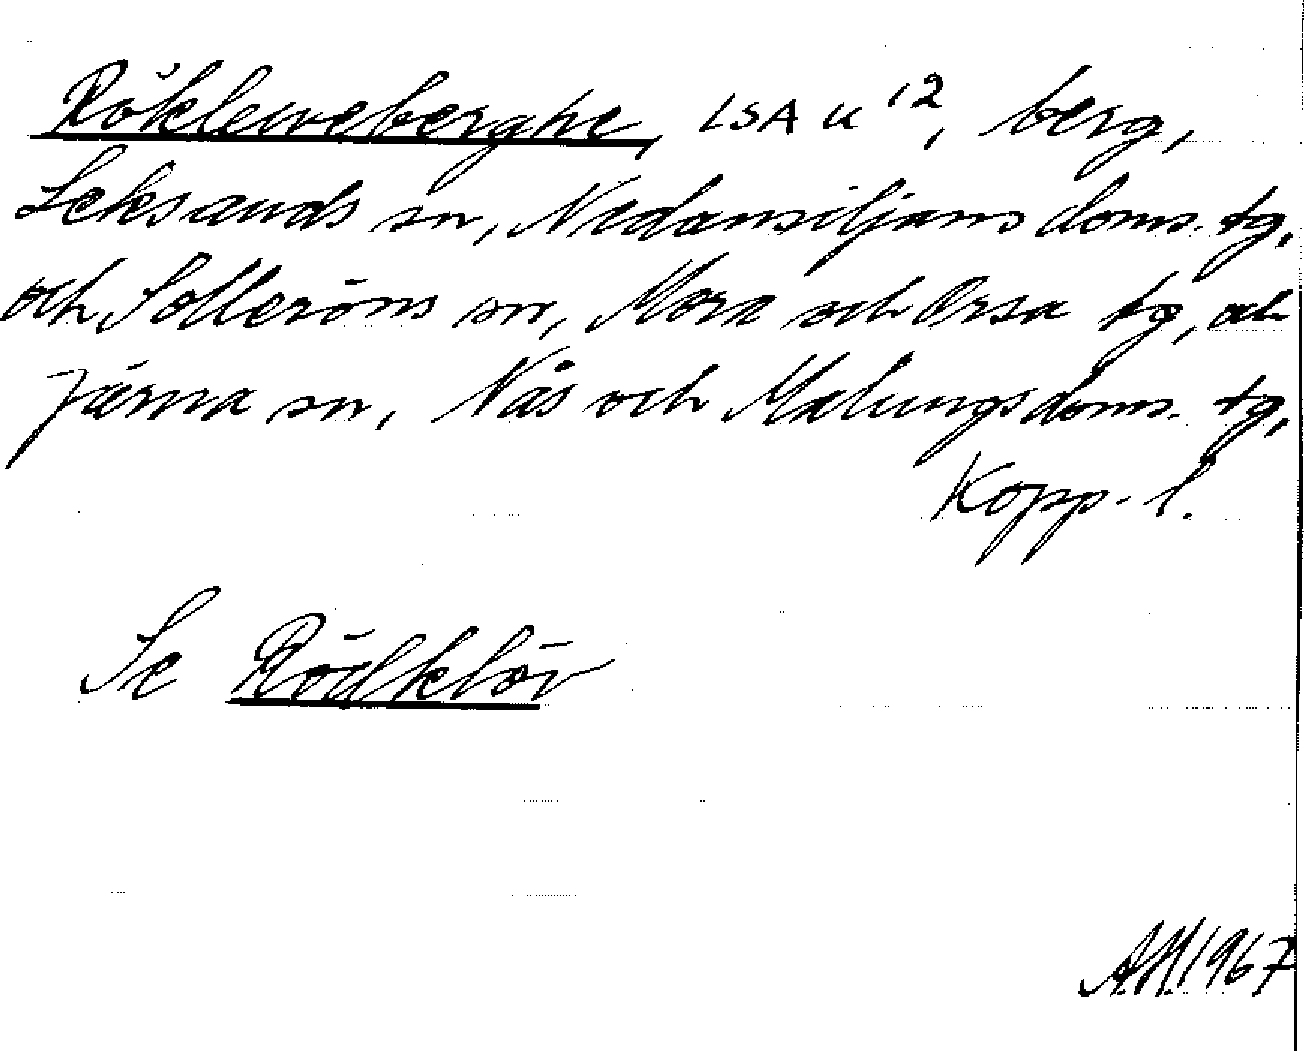 Rökleweberghe, LSA u 12, berg,
Leksands sn, Nedansiljans doms. tg,
och Solleröns sn, Mora och Orsa tg, och
Järna sn, Nås och Malungs doms. tg,
Kopp. l.
Se Rödklöv
1967